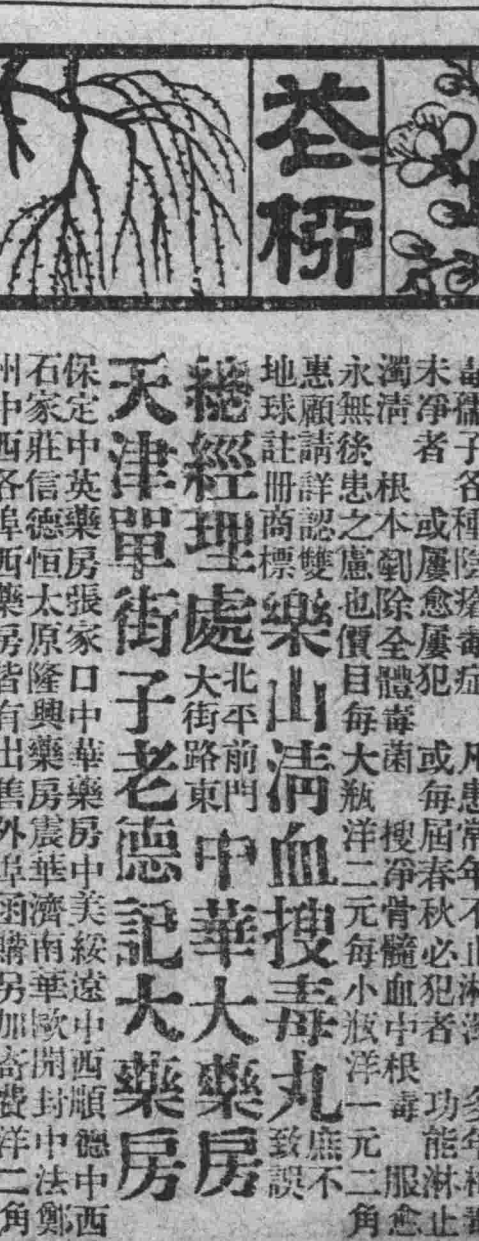 茶柳
毒孺子各種陰瘡毒症　凡患常年不止淋濁　多年根毒
未凈者　或屢愈屢犯　或每屆春秋必犯者　功能淋止
濁清　根本剷除全體毒菌　搜凈骨髓血中根毒　服愈
永無後患之慮也價目每大瓶洋二元每小瓶洋一元二角
惠顧請詳認雙
地球註冊商標
樂山清血搜毒丸
庶不
致誤
總經理處
北平前門
大街路東
中華大藥房
天津單街子老德記大藥房
保定中英藥房張家口中華藥房中美綏遠中西順德中西
石家莊信德恒太原隆興藥房震華濟南華歐開封中法鄭
州中西各埠西藥房皆有出售外埠函購另加寄費洋二角